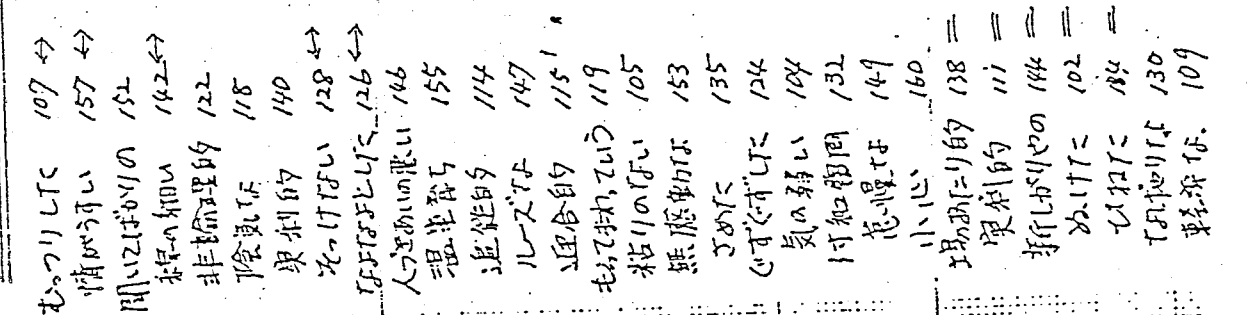 むっつりした 107 ↔
情がうすい 157 ↔
聞いてばかりの 152
線の細い 142 ↔
非論理的 122
陰気な 118
功利的 140
そっけない 128 ↔
なよなよとした 126 ↔
人づきあいの悪い 146
温室育ち 155
追従的 114
ルーズな 147
迎合的 115
もってまわっていう 119
粘りのない 105
無感動な 153
さめた 135
ぐずぐずした 124
気の弱い 104
付和雷同 132
怠慢な 149
小心 160
場あたり的 138 =
111 =
新しがりやの 144 =
ぬけた 102 =
ひねた 134 =
なれなれしい 130
軽率な. 109